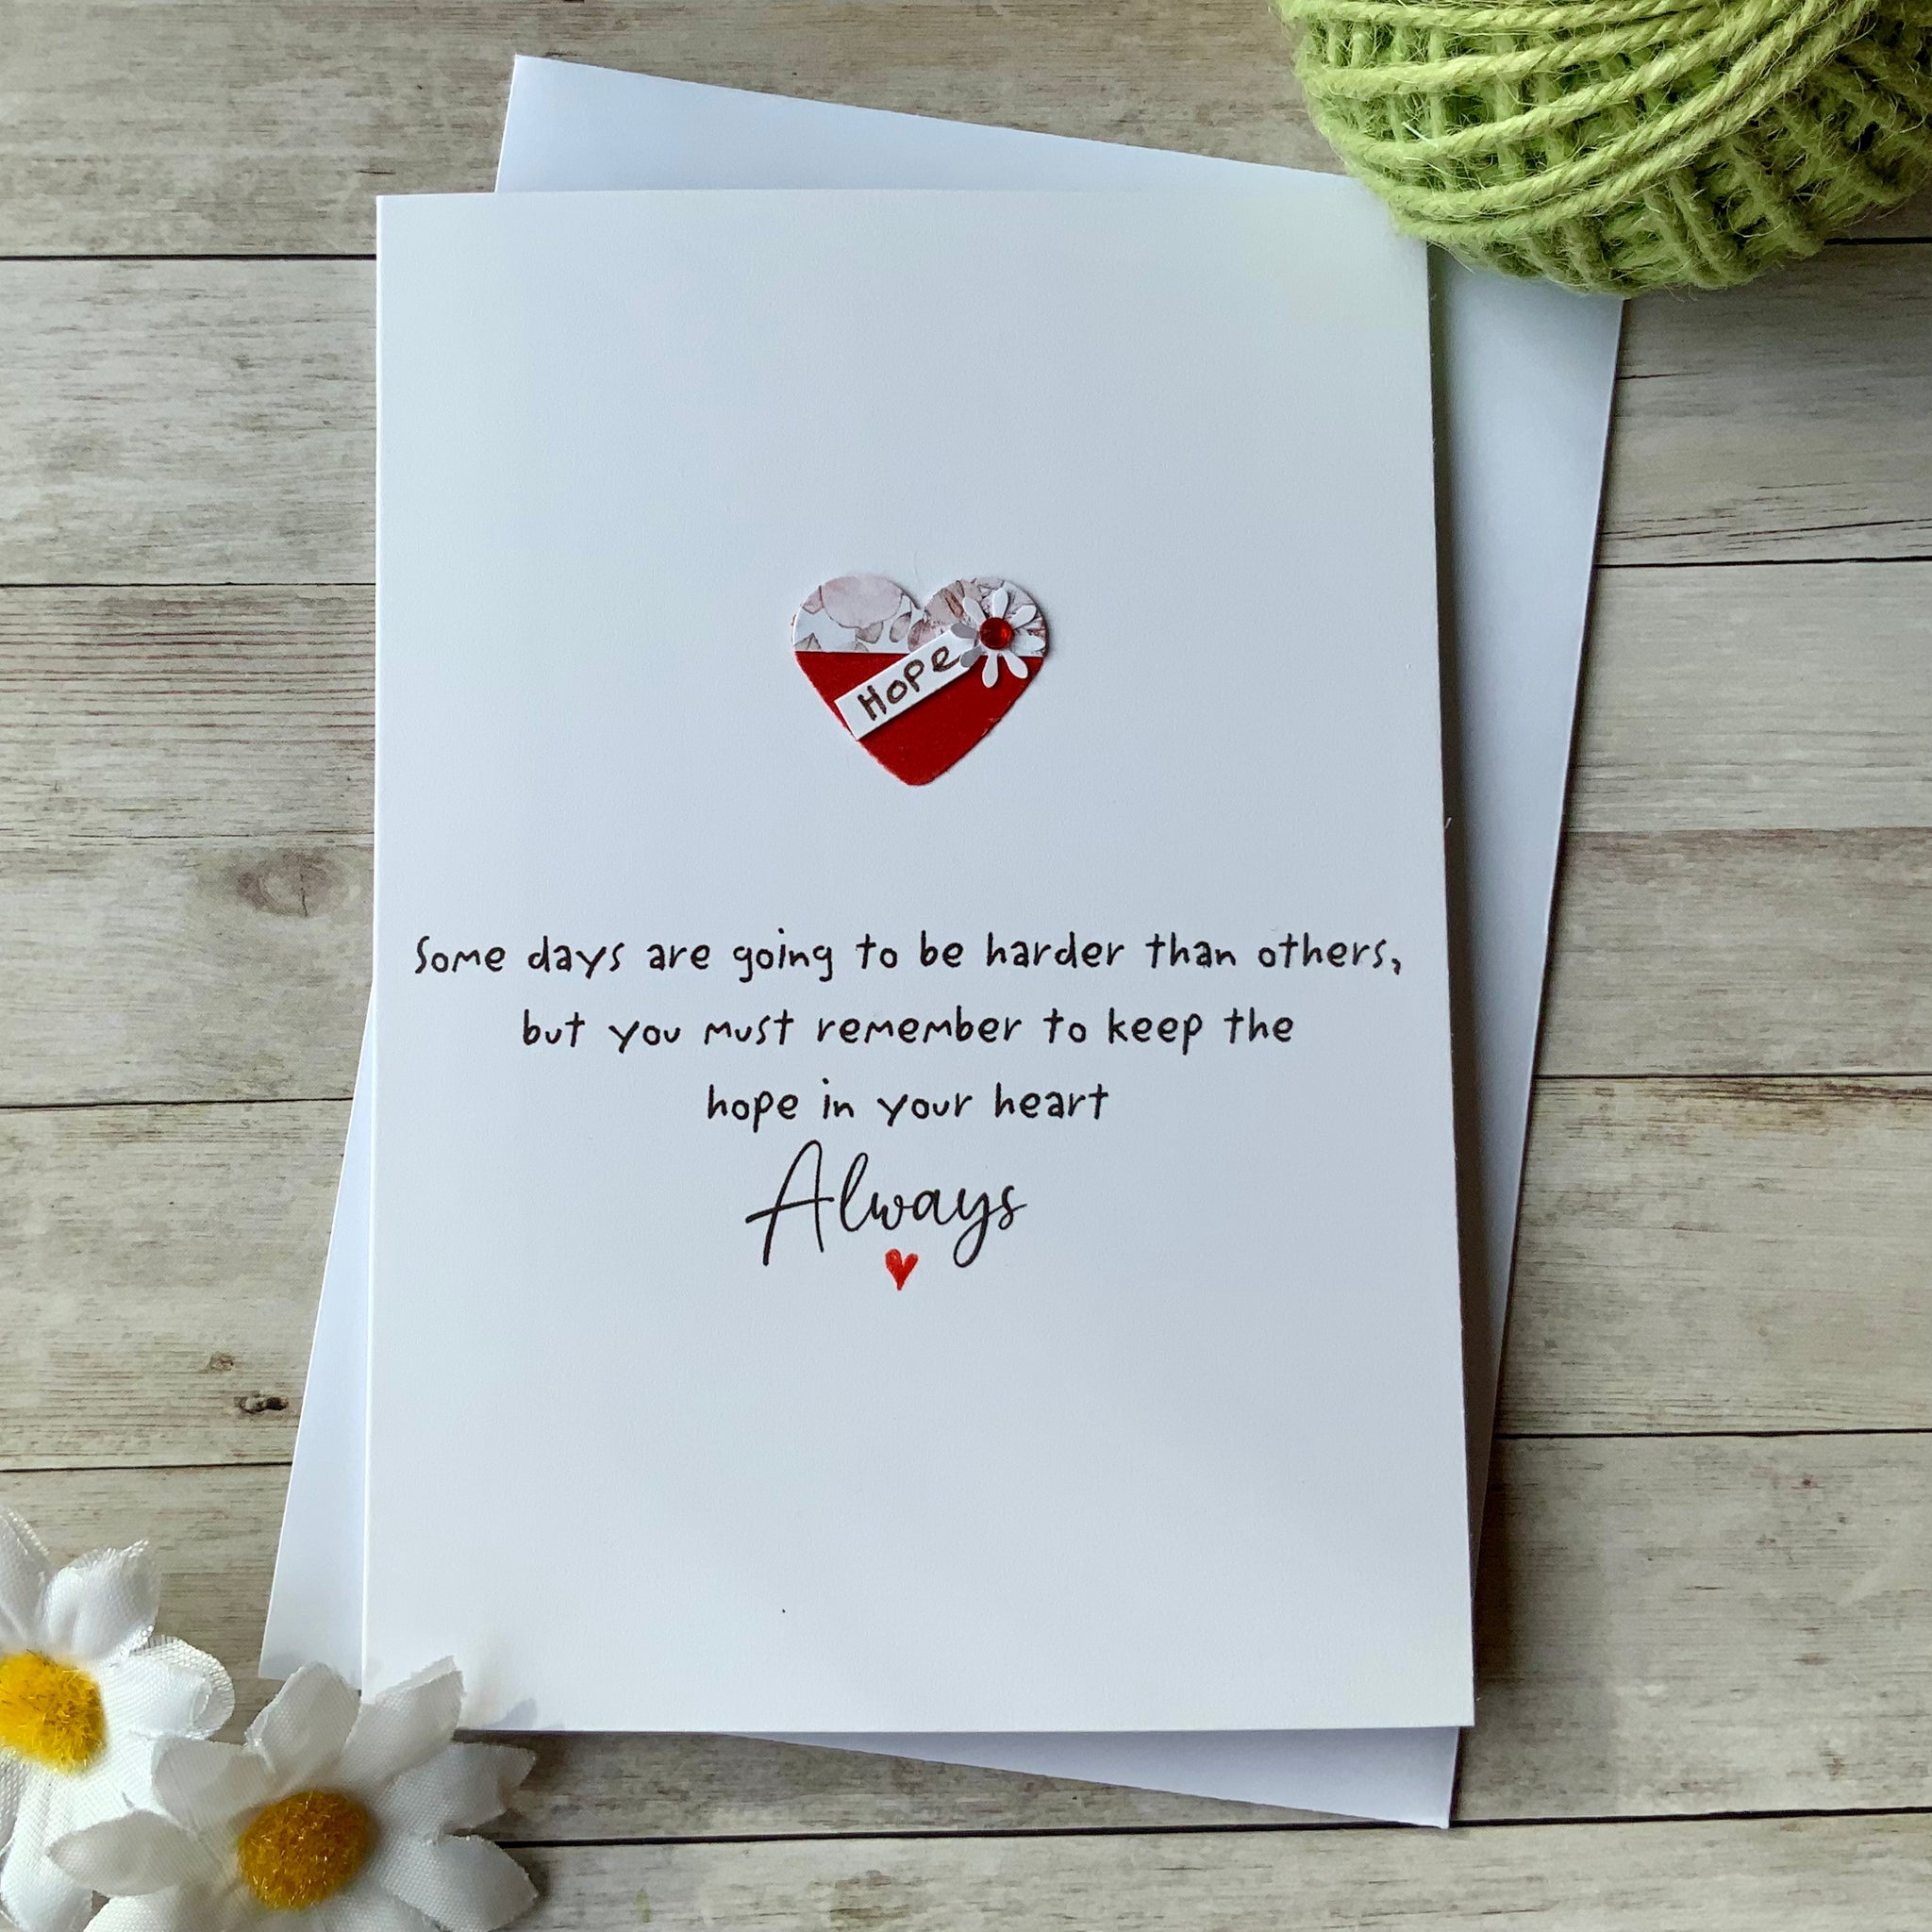 HOPE
Some days are going to be harder than others,
but you must remember to keep the
hope in your heart
Always